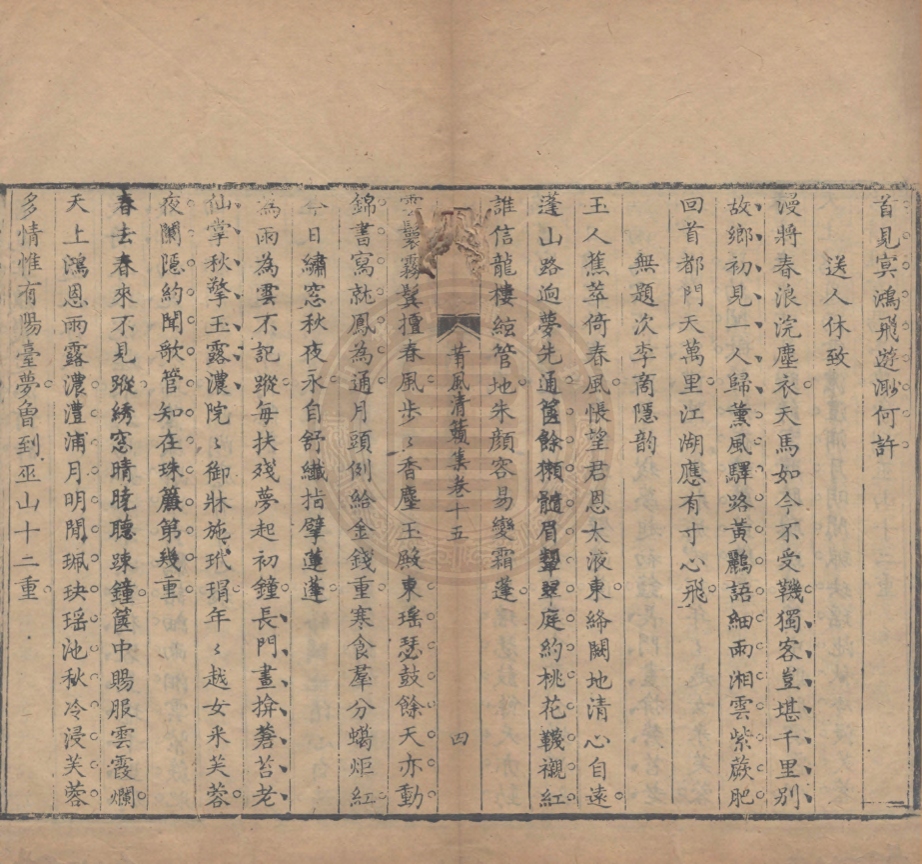 首見冥鴻飛遊渺何許
送人休致
漫將春浪浣塵衣天馬如今不受鞿獨客豈堪千里别
故鄉初見一人歸薰風驛路黃鸝語細雨湘雲紫蕨肥
回首都門天萬里江湖應有寸心飛
無題次李商隱韵
玉人蕉萃倚春風悵望君恩太液東締闕地清心自遠
蓬山路逈夢先通篋餘獺髓眉顰翠庭約桃花韈襯紅
誰信龍樓綜管地朱顔容易變霜蓬
菁風清籟集卷十五
四
雲鬟霧鬢擅春風步〻香塵玉殿東瑶瑟鼓餘天亦動
錦書寫就鳳為通月頭例給金錢重寒食羣分蠟炬紅
今日繡窓秋夜永自舒纖指擘蓮蓬
為雨為雲不記蹤每扶殘夢起初鐘長門晝揜蒼苔老
仙掌秋擎玉露濃院〻御牀施玳瑁年〻越女釆芙蓉
夜闌隠約聞歌管知在珠簾第幾重
春去春來不見蹤綉窓晴曉聽踈鐘篋中賜服雲霞爛
天上鴻恩雨露濃澧浦月明閒珮玦瑶池秋冷浸芙蓉
多情惟有陽臺夢曾到巫山十二重